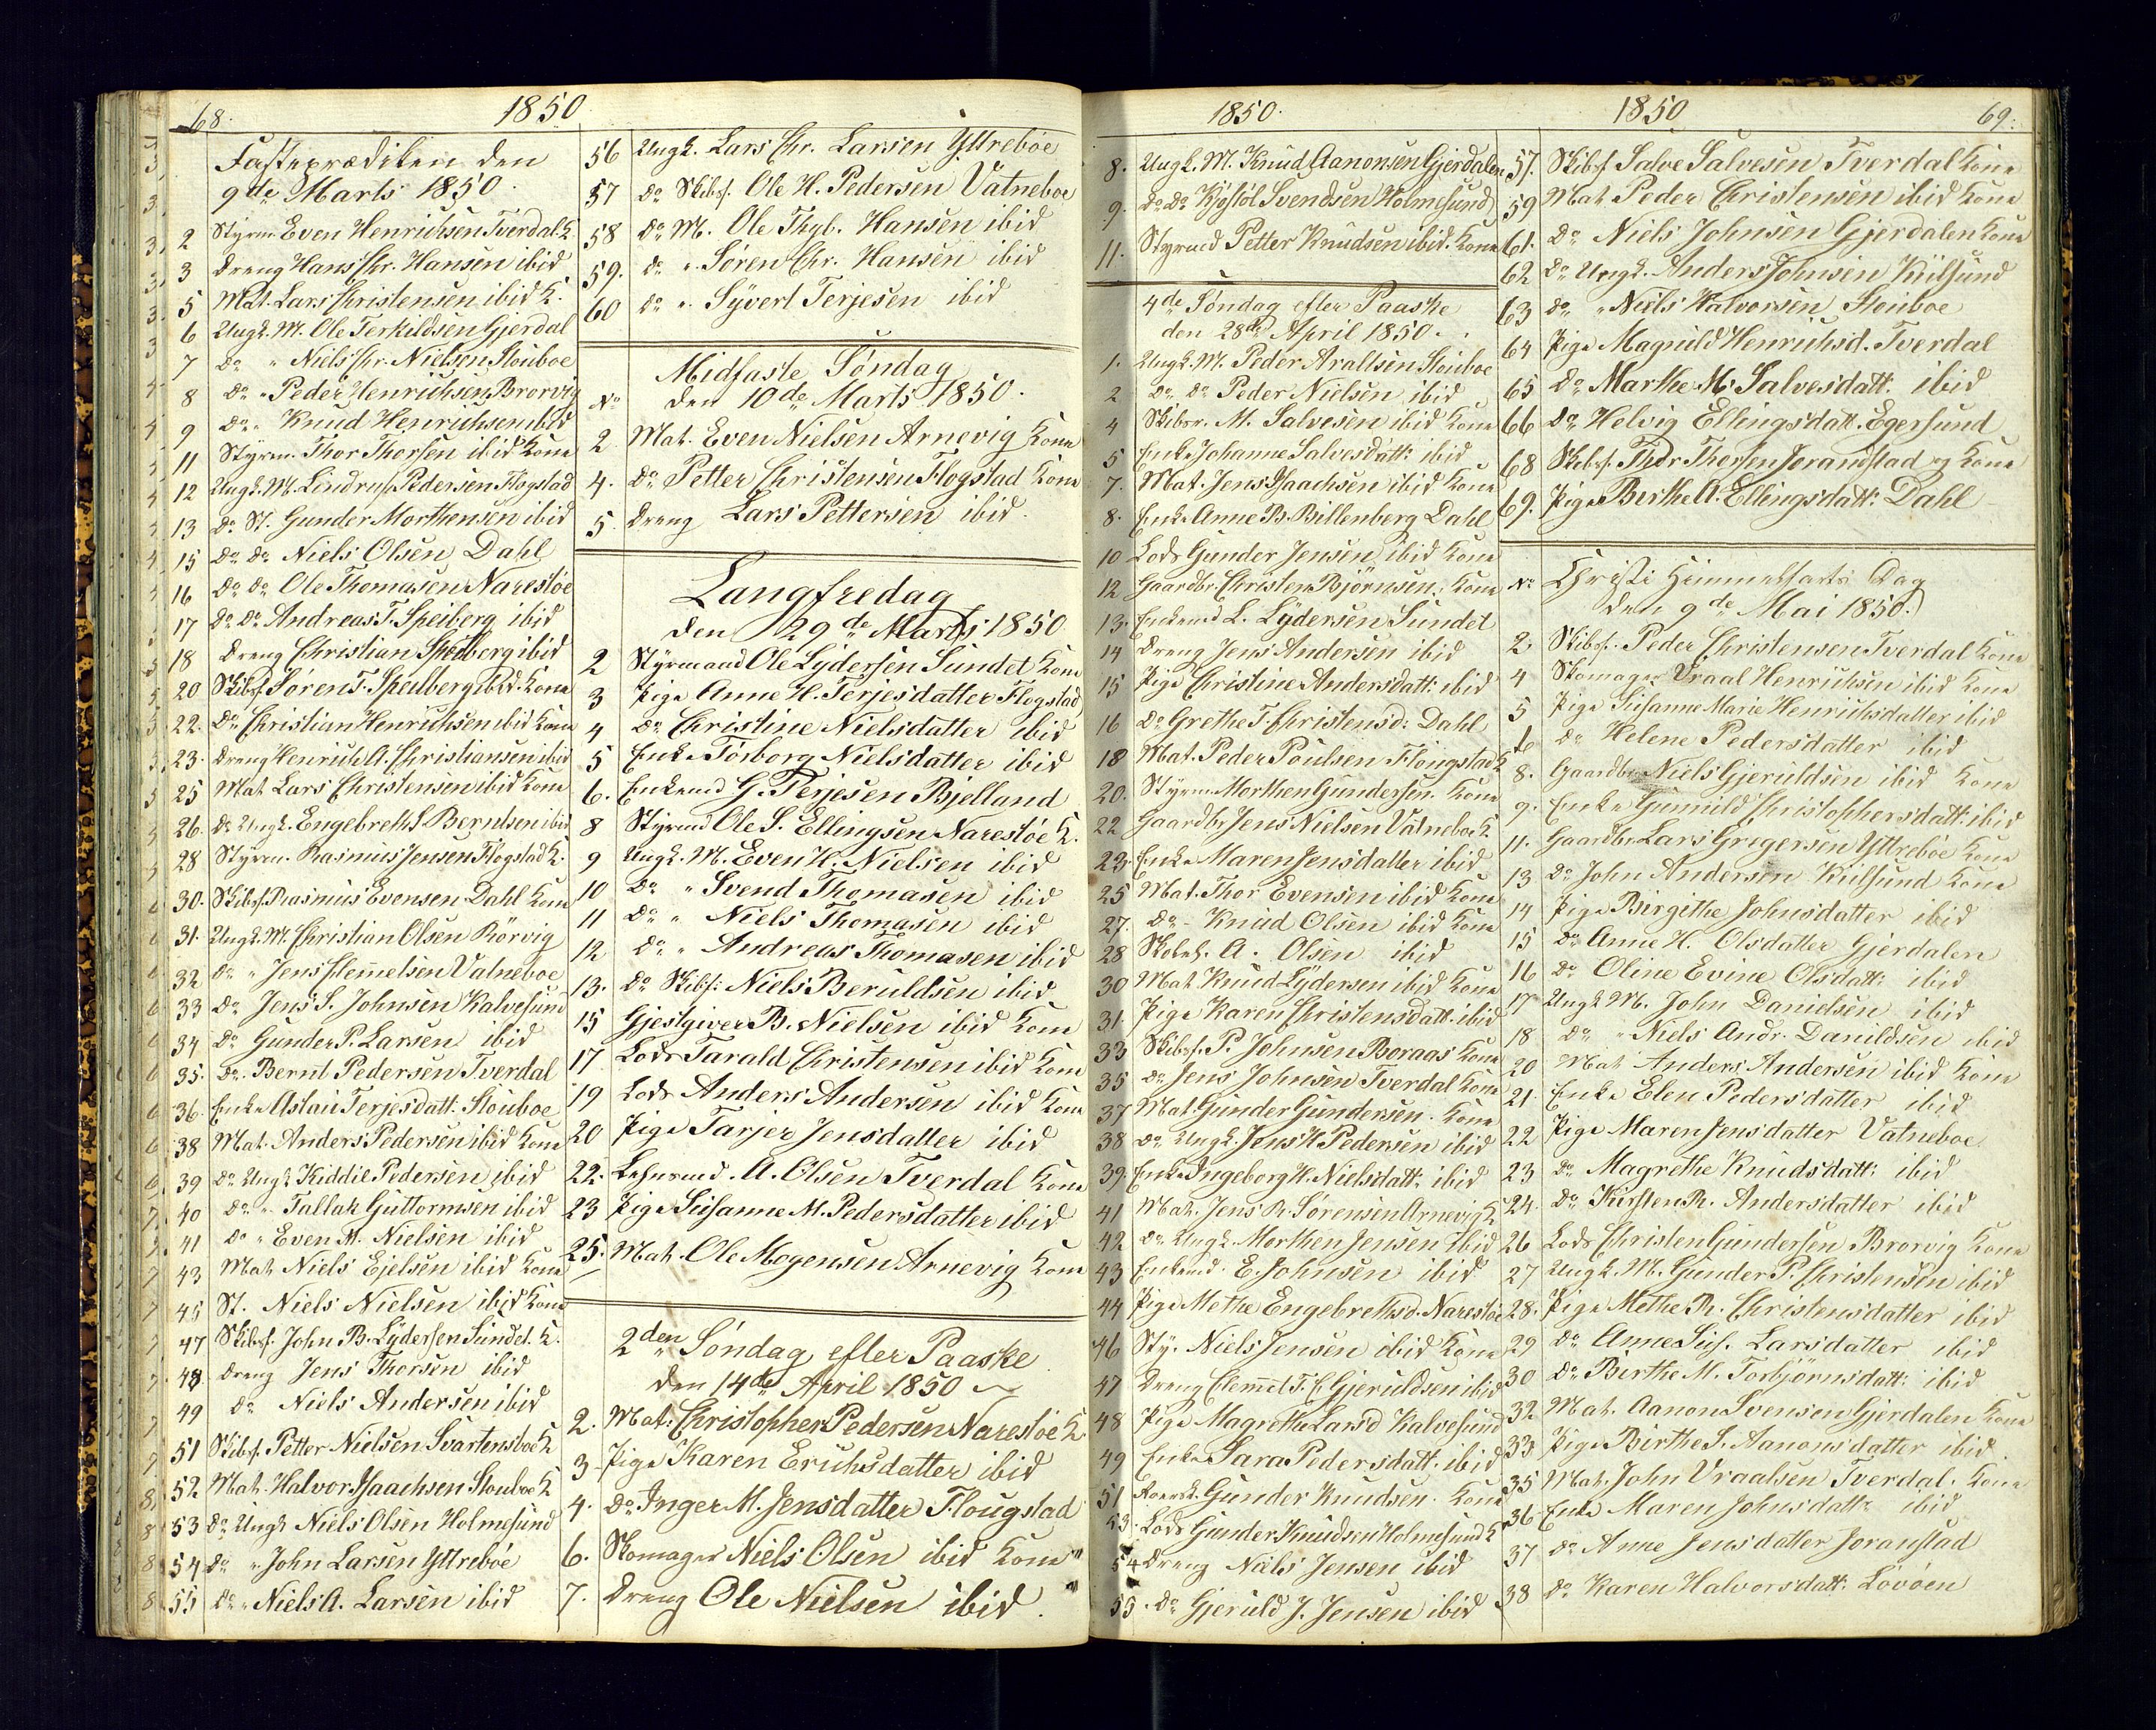 68.
1850
Fasteprædiken den
9de Marts 1850.
2 Styrm. Even Henrichsen Tverdal K.
3 Dreng Hans Chr. Hansen ibid
5 Mat. Lars Christensen ibid K.
6 Ungk. M. Ole Terkildsen Gjerdal
7 Do " Niels Chr. Nielsen Stouboe
8 Do " Peder Henrichsen Brorvig
9 Do " Knud Henrichsen ibid
11 Styrm. Thor Thorsen ibid Kone
12 Ungk. M. Lendrup Pedersen Flogstad
13 Do St. Gunder Morthensen ibid
15 Do Do Niels Olsen Dahl
16 Do Do Ole Thomasen Narestöe
17 Do Do Andreas T. Speiberg ibid
18 Dreng Christian Speiberg ibid
20 Skibsf. Sören T. Speilberg ibid. Kone
22. Do Christian Henrichsen ibid Kone
23. Dreng Henrich A. Christiansen ibid
25 Mat Lars Christensen ibid Kone
26. Do Ungk. Engebreth S Berntsen ibid
28 Styrm. Rasmus Jensen Flogstad K.
30. Skibsf. Rasmus Evensen Dahl Kone
31. Ungk. M. Christian Olsen Rörvig
32 Do " Jens Clemmetsen Vatneboe
33 Do Jens S. Johnsen Kalvesund
34 Do Gunder P. Larsen ibid
35. Do. Bernt Pedersen Tverdal
36. Enke Aslau Terjesdatt. Stouboe
38 Mat. Anders Pedersen ibid Kone
39 Do Ungk Kiddil Pedersen ibid
40 Do " Tallak Guttormsen ibid
41 Do " Even M. Nielsen ibid
43 Mat Niels Ejelsen ibid Kone
45 St. Niels Nielsen ibid Kone
47 Skibsf. John B. Lydersen Sundet. K.
48 Dreng Jens Thorsen ibid
49 Do Niels Andersen ibid
51 Skibsf. Petter Nielsen Svartensboe K
52 Mat. Halvor Isaachsen Stouboe K
53 Do Ungk Niels Olsen Holmesund
54 Do " John Larsen Yttreböe
55 Do " Niels A. Larsen ibid
56 Ungk. Lars Chr. Larsen Yttreböe
57 Do Skibsf. Ole H. Pedersen Vatneboe
58 Do M. Ole Thyb. Hansen ibid
59. Do " Sören Chr. Hansen ibid
60 Do " Syvert Terjesen ibid
Midfaste Söndag
No den 10de Marts 1850.
2 Mat. Even Nielsen Arnevig Kone
4. Do Petter Christensen Flogstad Kone
5. Dreng Lars Pettersen ibid.
Langfredag
den 29de Marts 1850
2 Styrmand Ole Lydersen Sundet Kone
3 Pige Anne H. Terjesdatter Flogstad
4 Do Christine Nielsdatter ibid
5 Enke Torborg Nielsdatter ibid
6. Enkemd G. Terjesen Bjelland
8 Styrmd Ole S. Ellingsen Narestöe K.
9 Ungk. M. Even H. Nielsen ibid
10 Do " Svend Thomasen ibid
11 Do " Niels Thomasen ibid
12 Do " Andreas Thomasen ibid
13. Do Skibsf: Niels Beruldsen ibid
15 Gjestgiver B. Nielsen ibid Kone
17 Lods Tarald Christensen ibid Kone
19 Lods Anders Andersen ibid Kone
20 Pige Tarjer Jensdatter ibid
22. Lehnsmd. A. Olsen Tverdal Kone
23 Pige Susanne M. Pedersdatter ibid
25. Mat. Ole Mogensen Arnevig Kone
2den Söndag efter Paaske
den 14de April 1850
2. Mat: Christopher Pedersen Narestöe K.
3 Pige Karen Erichsdatter ibid
4. Do Inger M. Jensdatter Flougstad
6. Skomager Niels Olsen ibid Kone "
7. Dreng Ole Nielsen ibid. "
1850.
8. Ungk. M. Knud Aanonsen Gjerdalen
9. Do Do Kjöstöl Svendsen Holmesund
11. Styrmd Petter Knudsen ibid. Kone
4de Söndag efter Paaske
den 28de April 1850.
1. Ungk. M. Peder Araltsen Stouboe
2 Do Do Peder Nielsen ibid
4 Skibsr. M. Salvesen ibid Kone
5 Enke Johanne Salvesdatt: ibid
7. Mat. Jens Isaachsen ibid Kone
8. Enke Anne B. Billenberg Dahl
10 Lods Gunder Jensen ibid Kone
12 Gaardbr. Christen Björnsen: Kone
13. Enkemd L. Lydersen Sundet
14 Dreng Jens Andersen ibid
15 Pige Christine Andersdatt: ibid
16 Do Grethe T. Christensd: Dahl
18 Mat. Peder Poulsen Flougstad K
20. Styrm. Morthen Gundersen. Kone
22 Gaardbr. Jens Nielsen Vatneboe K.
23. Enke Maren Jensdatter ibid
25 Mat. Thor Evensen ibid Kone
27. Do - Knud Olsen ibid Kone
28 Skoleh. A. Olsen ibid
30 Mat Knud Lydersen ibid Kone
31. Pige Karen Christensdatt. ibid
33 Skibsf. P. Johnsen Boraas Kone
35 Do Jens Johnsen Tverdal Kone
37 Mat. Gunder Gundersen. Kone
38 Do Ungk. Jens H Pedersen ibid
39. Enke Ingeborg H. Nielsdatt: ibid
41 Mat. Jens R. Sörensen Arnevig K
42 Do Ungk. Morthen Jensen ibid
43 Enkemd. E. Johnsen ibid
44 Pige Methe Engebrethsd. Narestöe
46 Sty. Niels Jensen ibid Kone
47 Dreng Clemmet T. C. Gjeruldsen ibid
48 Pige Magrethe Larsd Kalvesund
49 Enke Sara Pedersdatt. ibid
51 Gunder Knudsen. Kone
53. Lods Gunder Knudsen Holmesund K
54 Dreng Niels Jensen ibid
55. Do Gjeruld J. Jensen ibid
1850
69.
57. Skibsf. Salve Salvesen Tverdal Kone
59 Mat Peder Christensen ibid Kone
61. Do Niels Johnsen Gjerdalen Kone
62 Do Ungk. Anders Johnsen Kiilsund
63 Do " Niels Halvorsen Stouboe
64 Pige Magnild Henrichsd. Tverdal
65 Do Marthe M. Salvesdatt: ibid
66 Do Helvig Ellingsdatt. Egersund
68 Skibsf. Thor Thorsen Jorandstad og Kone
69. Pige Birthe A. Ellingsdatt: Dahl
No Christi Himmelfarts Dag
den 9de Mai 1850.
2. Skibsf. Peder Christensen Tverdal Kone
4 Skomager Vraal Henrichsen ibid Kone
5 Pige Susanne Marie Henrichsdatter ibid
6 Do Helene Pedersdatter ibid
8. Gaardbr Niels Gjeruldsen ibid Kone
9. Enke Gunnild Christophersdatt: ibid
11. Gaardbr Lars Gregersen Yttreböe Kone
13 Do John Andersen Kiilsund Kone
14 Pige Birgithe Johnsdatter ibid
15 Do Anne H. Olsdatter Gjerdalen
16 Do Oline Evine Olsdatt: ibid
17 Ungk M. John Danielsen ibid
18 Do " Niels Andr. Danildsen ibid
20 Mat Anders Andersen ibid Kone
21. Enke Elen Pedersdatter ibid
22 Pige Maren Jensdatter Vatneboe
23 Do Magrethe Knudsdatt: ibid
24. Do Kirsten R. Andersdatter ibid
26 Lods Christen Gundersen Brorvig Kone
27 Ungk. M. Gunder P. Christensen ibid
28. Pige Methe R. Christensdatter ibid
29 Do Anne Sus. Larsdatter ibid
30 Do Birthe M. Torbjörnsdatt: ibid
32 Mat. Aanon Svensen Gjerdalen Kone
33 Pige Birthe S. Aanonsdatter ibid
35 Mat. John Vraalsen Tverdal. Kone
36 Enke Maren Johnsdatt: ibid
37 Do Anne Jensdatter Joranstad
38 Do Karen Halvorsdatt: Lövöen